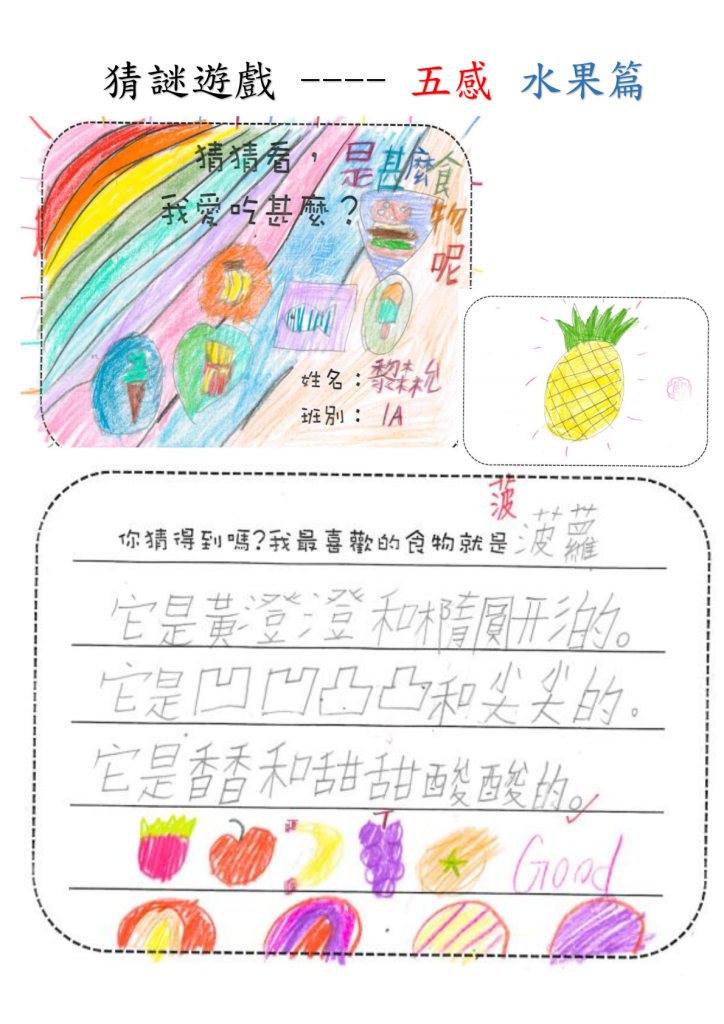 猜謎遊戲 ---- 五感 水果篇
猜猜看，是甚麼食物呢
我愛吃甚麼？
姓名：黎森松
班別： 1A
菠
你猜得到嗎?我最喜歡的食物就是菠蘿
它是黃澄澄和橢圓形的。
它是凹凹凸凸和尖尖的。
它是香香和甜甜酸酸的。
Good